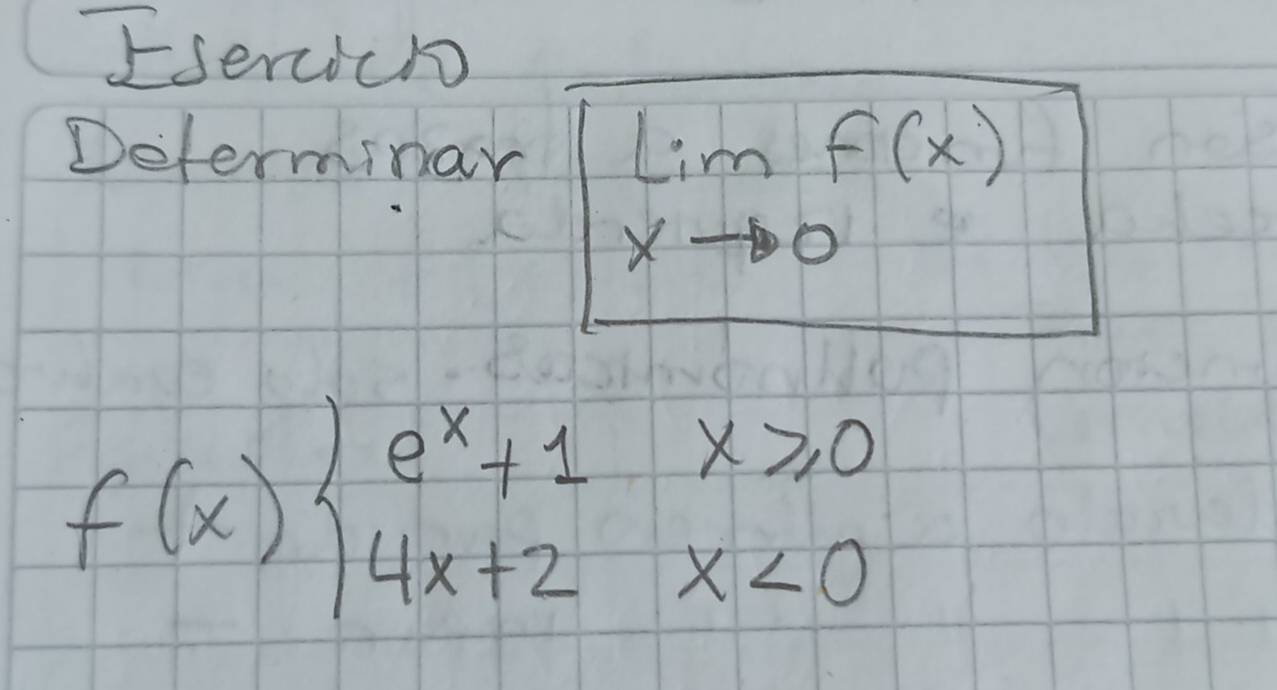 Ejercicio
Determinar Lim f(x)
x → 0
f(x) { e^x + 1 x ≥ 0
4x + 2 x < 0